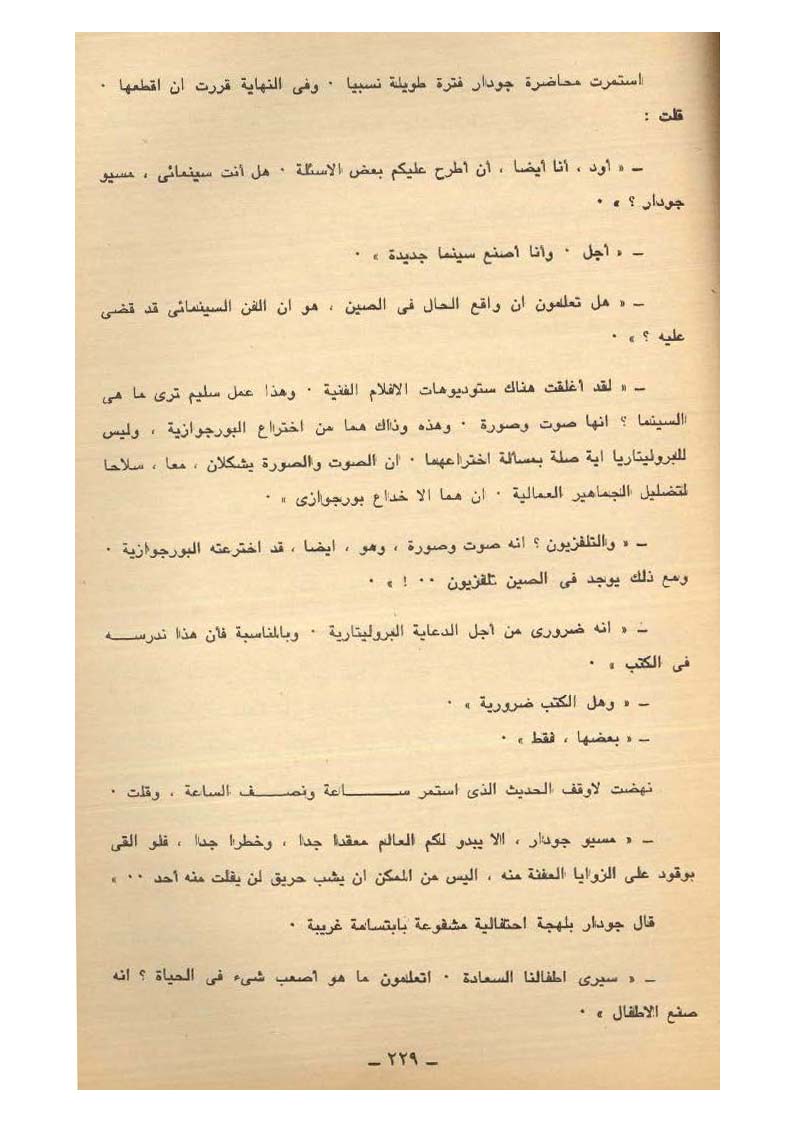 استمرت محاضرة جودار فترة طويلة نسبيا ٠ وفى النهاية قررت ان اقطعها ٠
قلت :
ــ « أود ، أنا أيضا ، أن أطرح عليكم بعض الاسئلة ٠ هل أنت سينمائى ، مسيو
جودار ؟ » ٠
ــ « أجل ٠ وأنا أصنع سينما جديدة » ٠
ــ « هل تعلمون ان واقع الحال فى الصين ، هو ان الفن السينمائى قد قضى
عليه ؟ » ٠
ــ « لقد أغلقت هناك ستوديوهات الافلام الفنية ٠ وهذا عمل سليم ترى ما هى
السينما ؟ انها صوت وصورة ٠ وهذه وذاك هما من اختراع البورجوازية ، وليس
للبروليتاريا اية صلة بمسألة اختراعهما ٠ ان الصوت والصورة يشكلان ، معا ، سلاحا
لتضليل الجماهير العمالية ٠ ان هما الا خداع بورجوازى » ٠
ــ « والتلفزيون ؟ انه صوت وصورة ، وهو ، ايضا ، قد اخترعته البورجوازية ٠
ومع ذلك يوجد فى الصين تلفزيون ٠٠ ! » ٠
ــ « انه ضرورى من أجل الدعاية البروليتارية ٠ وبالمناسبة فأن هذا ندرســـه
فى الكتب » ٠
ــ « وهل الكتب ضرورية » ٠
ــ « بعضها ، فقط » ٠
نهضت لاوقف الحديث الذى استمر ســـــاعة ونصـــف الساعة ، وقلت ٠
ــ « مسيو جودار ، الا يبدو لكم العالم معقدا جدا ، وخطرا جدا ، فلو القى
بوقود على الزوايا العفنة منه ، اليس من الممكن ان يشب حريق لن يفلت منه أحد ٠٠ »
قال جودار بلهجة احتفالية مشفوعة بابتسامة غريبة ٠
ــ « سيرى اطفالنا السعادة ٠ اتعلمون ما هو أصعب شىء فى الحياة ؟ انه
صنع الاطفال » ٠
ــ ٢٢٩ ــ